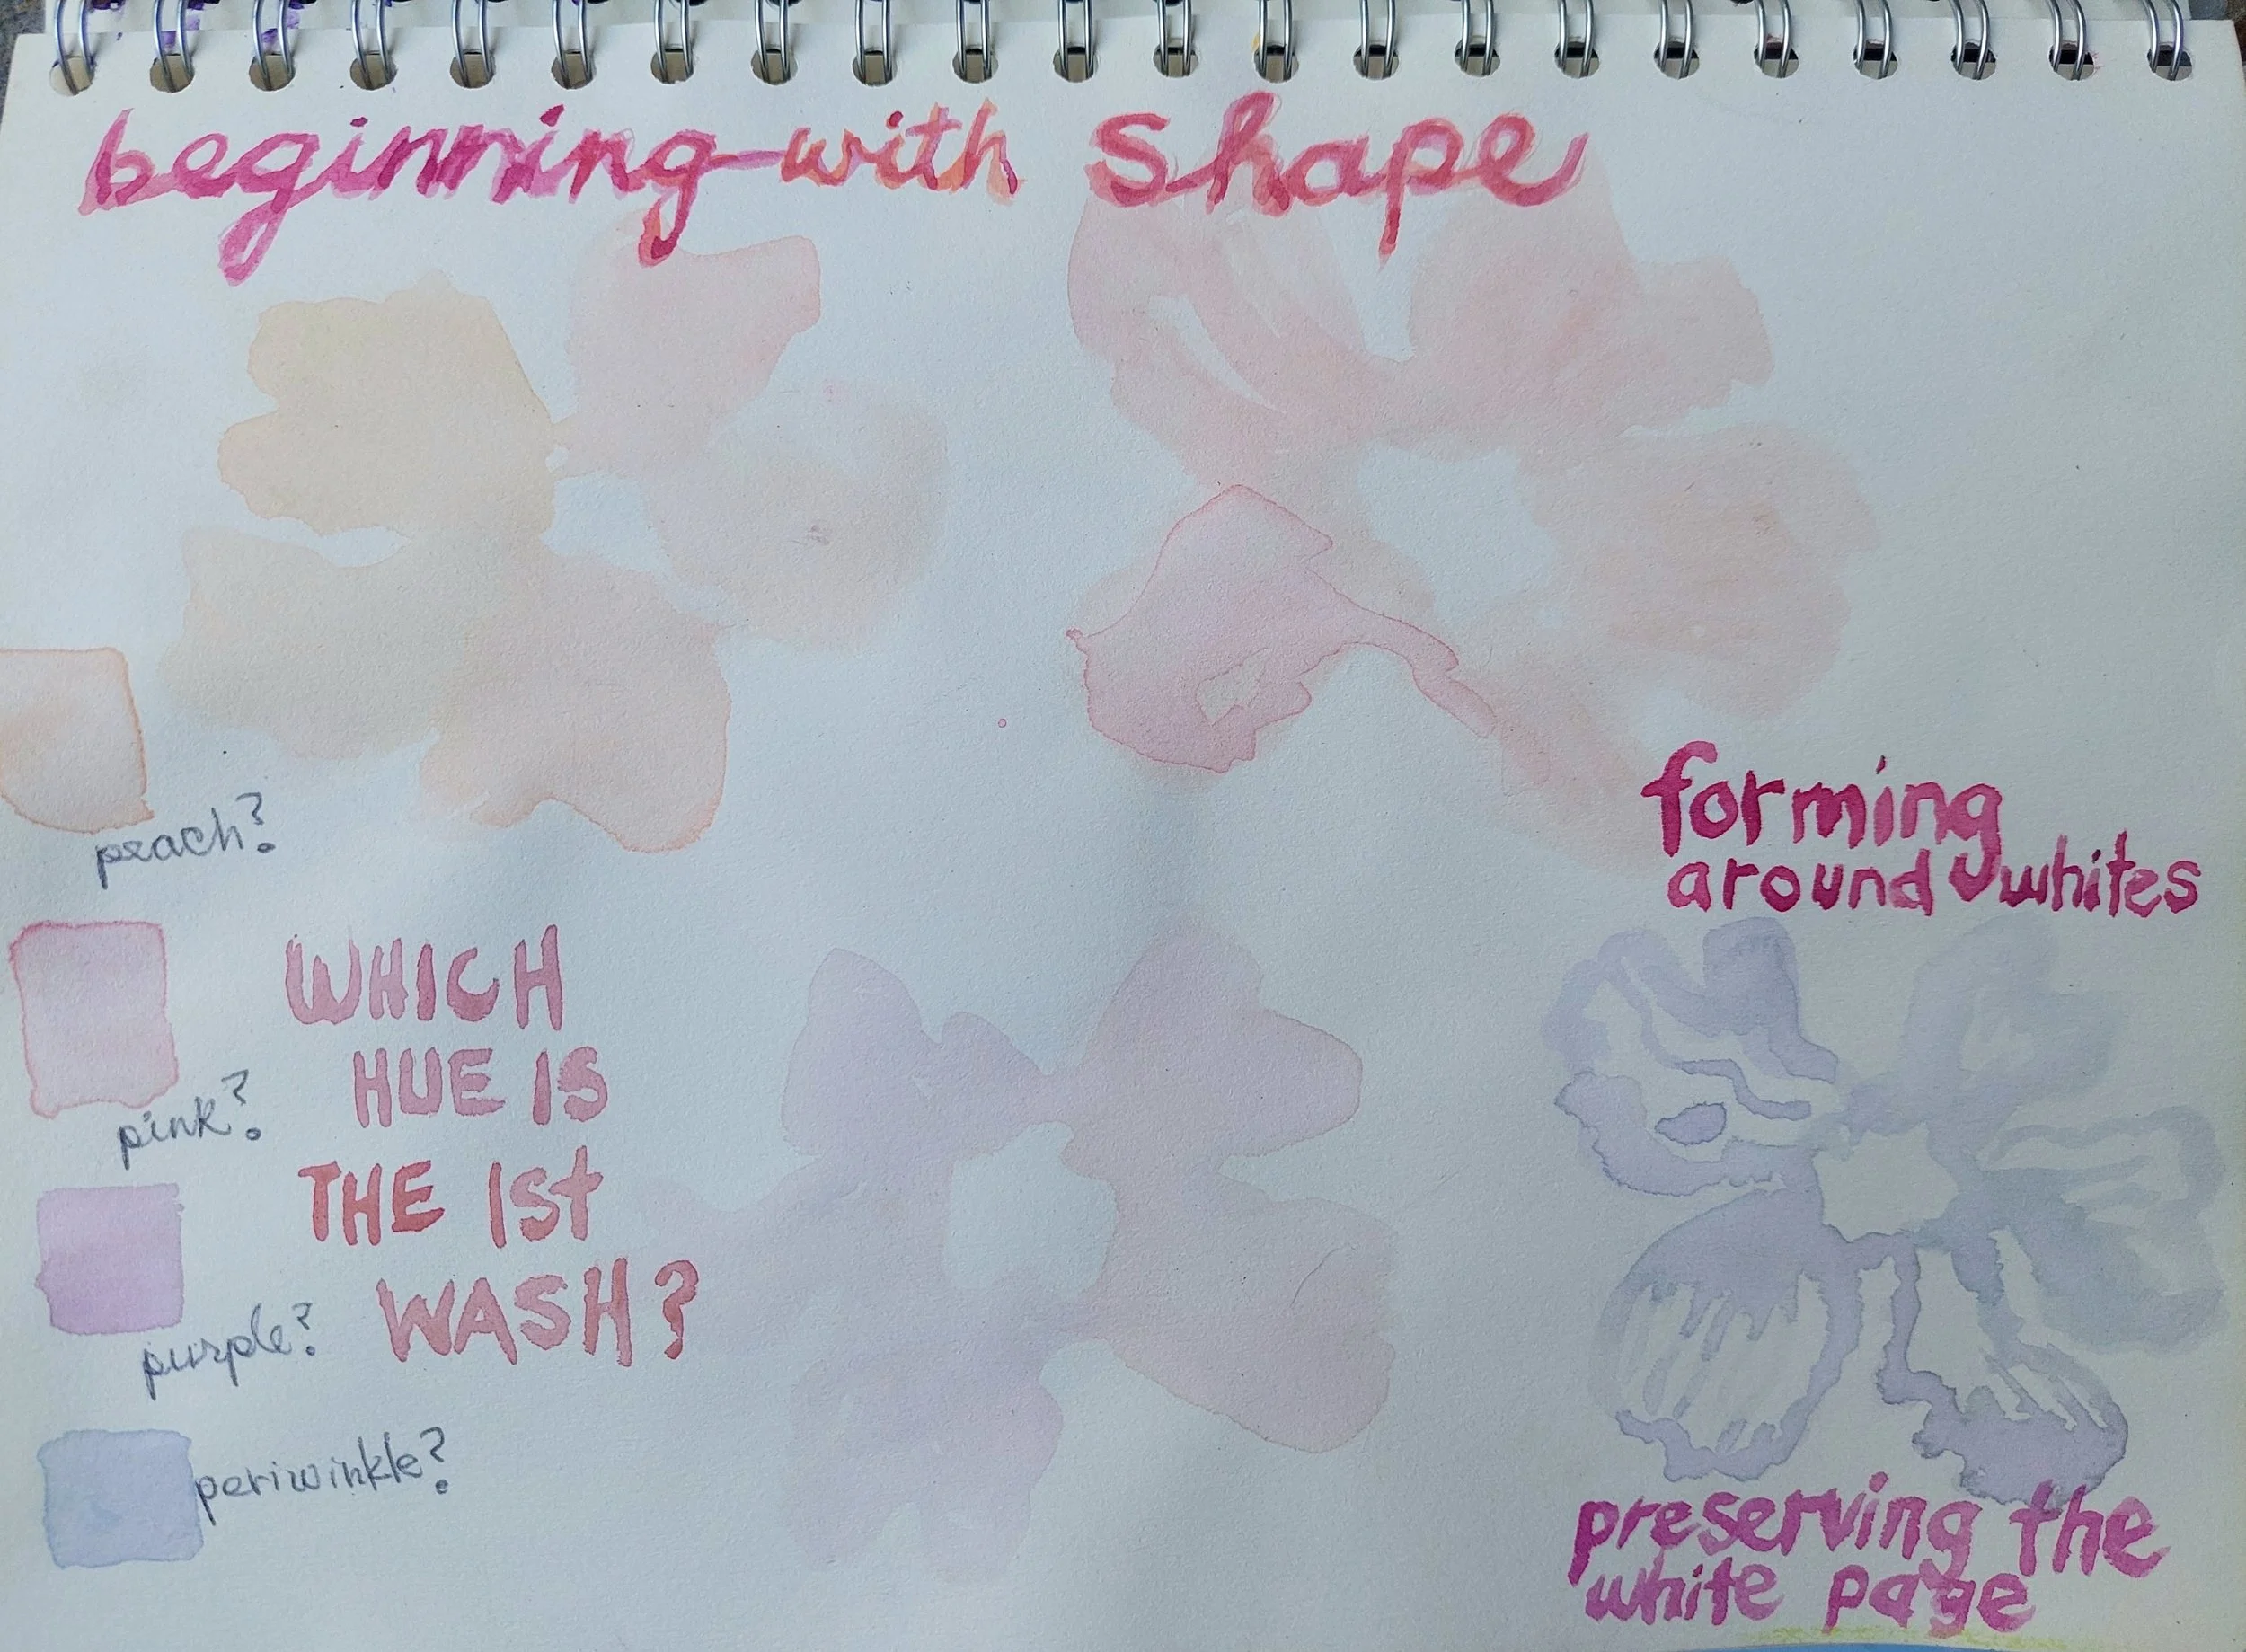 beginning with shape
forming
around whites
peach?
WHICH
HUE IS
THE 1st
WASH?
pink?
purple?
periwinkle?
preserving the
white page